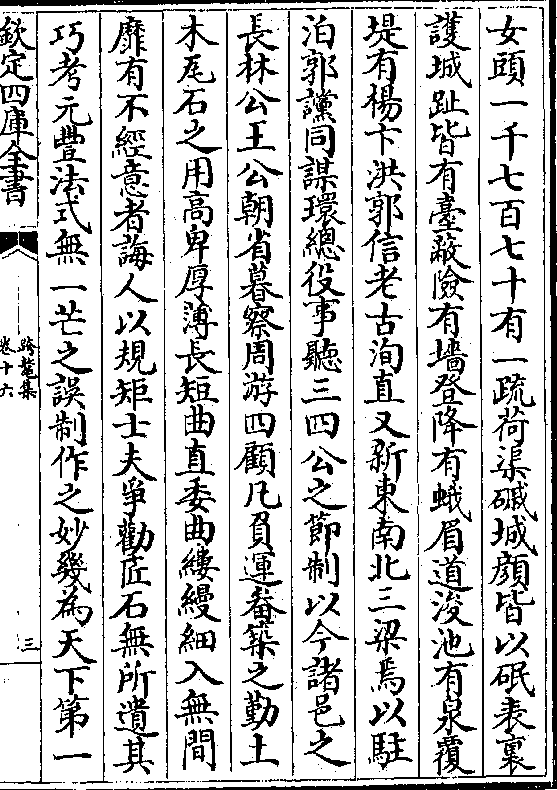 女頭一千七百七十有一疏荷渠碱城顔皆以砥表裏
護城趾皆有臺敵險有墻登降有蛾眉道浚池有泉覆
堤有楊卞洪郭信老古洵直又新東南北三梁焉以駐
泊郭讜同謀環總役事聽三四公之節制以今諸邑之
長林公王公朝省暮察周游四顧凡負運畚築之勤土
木瓦石之用高卑厚薄長短曲直委曲縷縵細入無間
靡有不經意者誨人以規矩士夫爭勸匠石無所遺其
巧考元豐法式無一芒之誤制作之妙幾為天下第一
欽定四庫全書
跨鼇集
卷十六
三